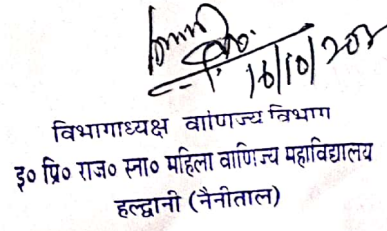 16/10/202
विभागाध्यक्ष वाणिज्य विभाग
इ० प्रि० राज० स्ना० महिला वाणिज्य महाविद्यालय
हल्द्वानी (नैनीताल)